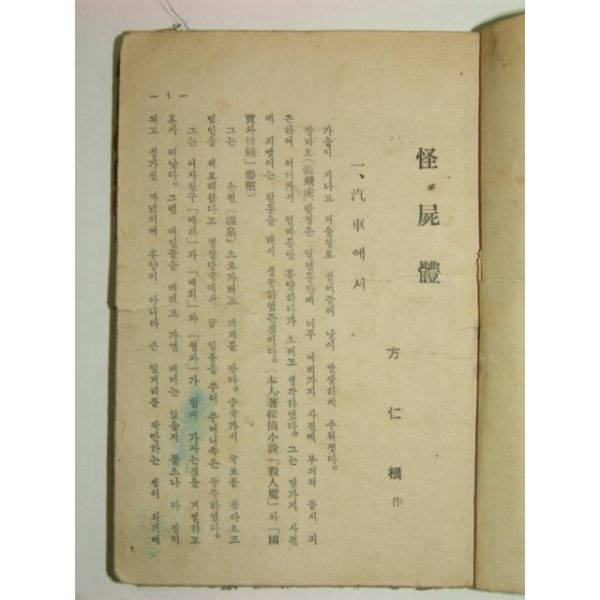 怪屍體
方仁根 作
一、汽車에서
가을이 지나고 겨울철로 잡어들어 날이 쌀쌀하게 추워젓다.
장비호(張飛虎)탐정은 일년동안에 너무 여러가지 사건에 부듸처 몹시 피
곤하여 어디가서 얼마동안 휴양하다가 오려고 생각하였다. 그는 몇가지 사건
에 피맺이는 활동을 해서 성공하였든것이다. (本人著探偵小說「殺人魔」와「國
寶와 怪賊」參照)
그는 온천(溫泉)으로가려고 기차를 탓다. 중국가서 국보를 찾아오고
범인을 체포해왔다고 경찰당국에서 금일봉을 주어 주머니속은 두둑하였다.
그는 여자친구「에리」와「매희」와「월파」가 함께 가자는것을 거절하고
혼자 떠낫다. 그런 여인들을 데리고 가면 재미는 있을지 몰으나 다 짐이
되고 성가신 까닭이며 휴양이 아니라 큰 일거리를 작만하는 셈이 되기때
— 1 —